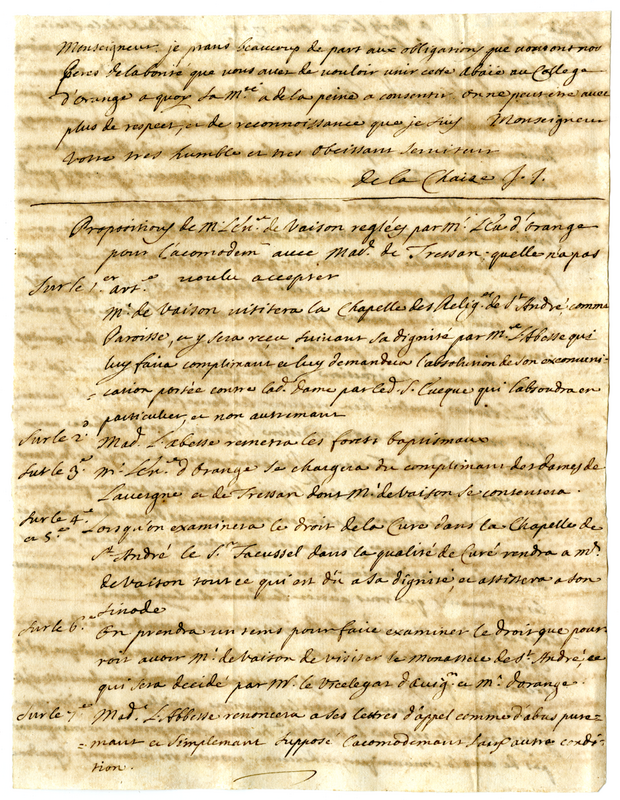 Monseigneur je prans beaucoup de part aux obligations que vous ont nos
peres de la bonté que vous avez de vouloir unir cette abaie au College
d'orange a quoy sa Mté a de la peine a consentir on ne peut être avec
plus de respect, et de reconnoissance que je suy Monseigneur
Votre tres humble et tres obeissant serviteur
de la Chaize J. J.
Propositions de Mr L'Ev. de Vaison reglées par Mr L'Ev. d'Orange
pour l'acomodemt avec Mad. de Tressan quelle n'a pas
voulu accepter
Sur le 1.er art.e
Mr de Vaison visitera la Chapelle des Relig.ses de St André comme
Paroisse, et y sera receu suivant sa dignité par Me L'Abesse qui
luy faira complimant et luy demandera l'absolution de son excomuni=
=cation portée contre lad. dame par led. S. Cucque qui l'absoudra en
particulier, et non autremant
Sur le 2.d Mad. L'abesse remetra les fonts baptismaux
Sur le 3.e Mr L'Ev. d'Orange se chargera du complimant des dames de
Lauvergne et de Tressan dont Mr de Vaison se contentera.
Sur le 4.e et 5.e Lorsqu'on examinera le droit de la Cure dans la Chapelle de
St André le Sr Tacussel dans la qualité de Curé rendra a Mr
de Vaison tout ce qui est dû a sa dignité, et assistera a son
sinode
Sur le 6.e On prendra un tems pour faire examiner le droit que pour=
roit avoir Mr de Vaison de visiter le monastere de St André, ce
qui sera decidé par Mr le Vicelegat d'avig. et Mr d'orange.
Sur le 7.e Mad. L'Abbesse renoncera a ses lettres d'appel comme d'abus pure=
=mant et simplemant supposé l'acomodemant sauf autre condi=
tion.